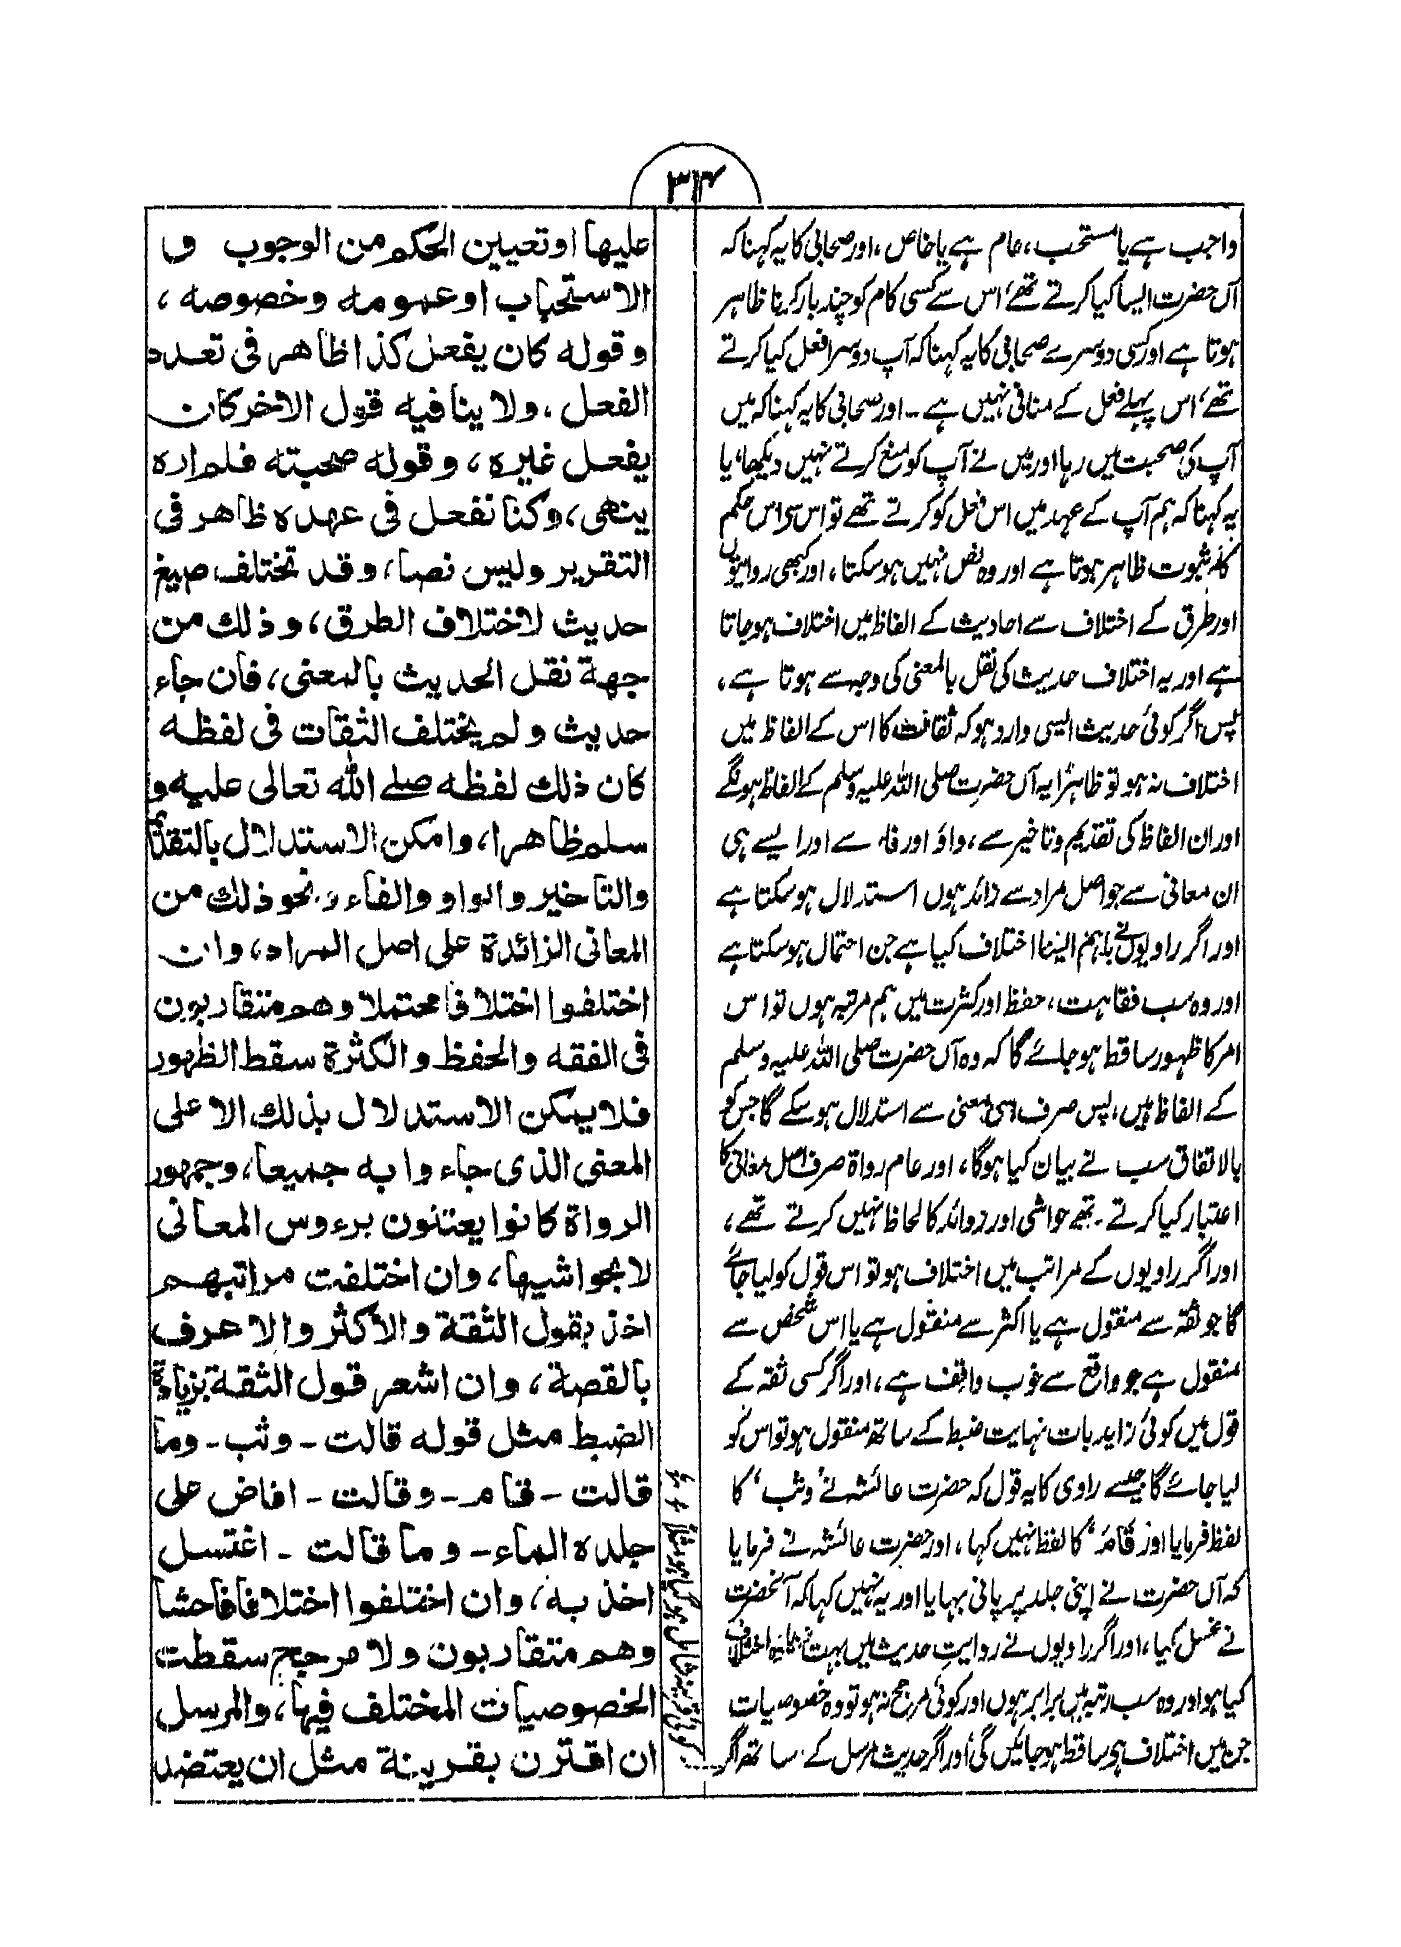 ۳۱۴
واجب ہے یا مستحب، عام ہے یا خاص، اور صحابی کا یہ کہنا کہ
آں حضرت ایسا کیا کرتے تھے، اس سے کسی کام کو چند بار کرنا ظاہر
ہوتا ہے اور کسی دوسرے صحابی کا یہ کہنا کہ آپ دوسرا فعل کیا کرتے
تھے، اس پہلے فعل کے منافی نہیں ہے۔ اور صحابی کا یہ کہنا کہ میں
آپ کی صحبت میں رہا اور میں نے آپ کو منع کرتے نہیں دیکھا، یا
یہ کہنا کہ ہم آپ کے عہد میں اس فعل کو کرتے تھے تو اس سے اس حکم
کا ثبوت ظاہر ہوتا ہے اور وہ نص نہیں ہو سکتا، اور کبھی روایتوں
اور طرق کے اختلاف سے احادیث کے الفاظ میں اختلاف ہو جاتا
ہے اور یہ اختلاف حدیث کی نقل بالمعنی کی وجہ سے ہوتا ہے،
پس اگر کوئی حدیث ایسی وارد ہو کہ ثقات کا اس کے الفاظ میں
اختلاف نہ ہو تو ظاہراً یہ آں حضرت صلی اللہ علیہ وسلم کے الفاظ ہونگے
اور ان الفاظ کی تقدیم و تاخیر سے، واؤ اور فاء سے اور ایسے ہی
ان معانی سے جو اصل مراد سے زائد ہوں استدلال ہو سکتا ہے
اور اگر راویوں نے باہم ایسا اختلاف کیا ہے جن احتمال ہو سکتا ہے
اور وہ سب فقاہت، حفظ اور کثرت میں ہم مرتبہ ہوں تو اس
امر کا ظہور ساقط ہو جائے گا کہ وہ آں حضرت صلی اللہ علیہ وسلم
کے الفاظ ہیں، پس صرف اسی معنی سے استدلال ہو سکے گا جس کو
بالاتفاق سب نے بیان کیا ہوگا، اور عام رواۃ صرف اصل معانی کا
اعتبار کیا کرتے تھے حواشی اور زوائد کا لحاظ نہیں کرتے تھے،
اور اگر راویوں کے مراتب میں اختلاف ہو تو اس قول کو لیا جائے
گا جو ثقہ سے منقول ہے یا اکثر سے منقول ہے یا اس شخص سے
منقول ہے جو واقع سے خوب واقف ہے، اور اگر کسی ثقہ کے
قول میں کوئی زاید بات نہایت ضبط کے ساتھ منقول ہو تو اس کو
لیا جائے گا جیسے راوی کا یہ قول کہ حضرت عائشہ نے "وثب" کا
لفظ فرمایا اور "قام" کا لفظ نہیں کہا، اور حضرت عائشہ نے فرمایا
کہ آں حضرت نے اپنی جلد پر پانی بہایا اور یہ نہیں کہا کہ آنحضرت
نے غسل کیا، اور اگر راویوں نے روایتِ حدیث میں بہت زیادہ اختلاف
کیا ہو اور وہ سب رتبہ میں برابر ہوں اور کوئی مرجح نہ ہو تو وہ خصوصیات
جن میں اختلاف ہو ساقط ہو جائیں گی اور اگر حدیث مرسل کے ساتھ اگر
کوئی قرینہ شامل ہو گیا ہو مثلاً
عليها او تعيين الحكم من الوجوب و
الاستحباب او عمومه وخصوصه،
وقوله كان يفعل كذا ظاهر فى تعدد
الفعل، ولا ينافيه قول الاخر كان
يفعل غيره، وقوله صحبته فلم اره
ينهى، وكنا نفعل فى عهده ظاهر فى
التقرير وليس نصا، وقد تختلف صيغ
حديث لاختلاف الطرق، وذلك من
جهة نقل الحديث بالمعنى، فان جاء
حديث ولم يختلف الثقات فى لفظه
كان ذلك لفظه صلے الله تعالى عليه و
سلم ظاهرا، وامكن الاستدلال بالتقديم
والتاخير والواو والفاء ونحو ذلك من
المعانى الزائدة على اصل المراد، وان
اختلفوا اختلافا محتملا وهم متقاربون
فى الفقه والحفظ والكثرة سقط الظهور
فلا يمكن الاستدلال بذلك الا على
المعنى الذى جاء وا به جميعا، وجمهور
الرواة كانوا يعتنون برءوس المعانى
لا بحواشيها، وان اختلفت مراتبهم
اخذ بقول الثقة والاكثر والاعرف
بالقصة، وان اشعر قول الثقة بزيادة
الضبط مثل قوله قالت - وثب - وما
قالت - قام - وقالت - افاض على
جلده الماء - وما قالت - اغتسل
اخذ به، وان اختلفوا اختلافا فاحشا
وهم متقاربون ولا مرجح سقطت
الخصوصيات المختلف فيها، والمرسل
ان اقترن بقرينة مثل ان يعتضد